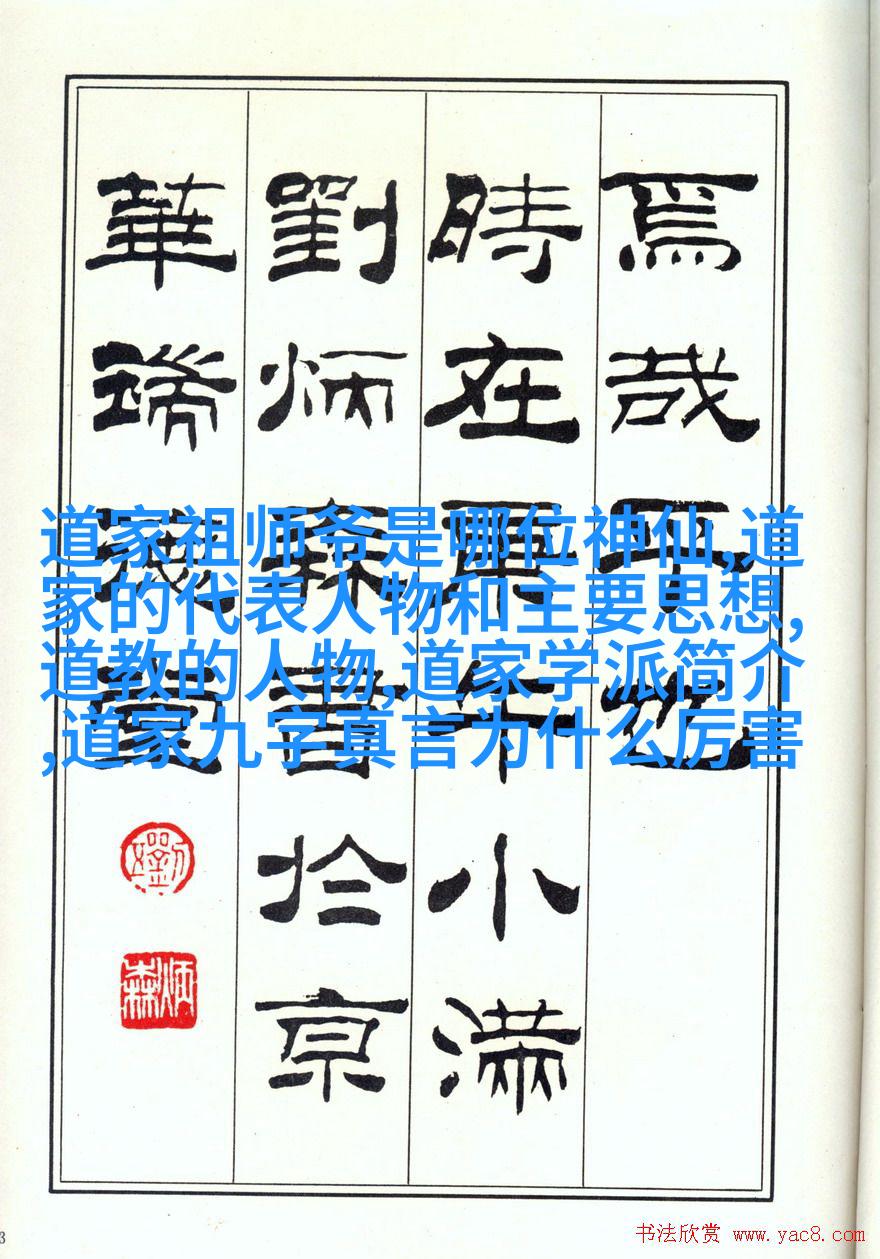 焉哉乎也
時在庚午小滿
劉炳森書於京
華
道家祖师爷是哪位神仙,道
家的代表人物和主要思想,
道教的人物,道家学派简介
,道家九字真言为什么厉害
劉
炳森
3
书法欣赏 www.yac8.com